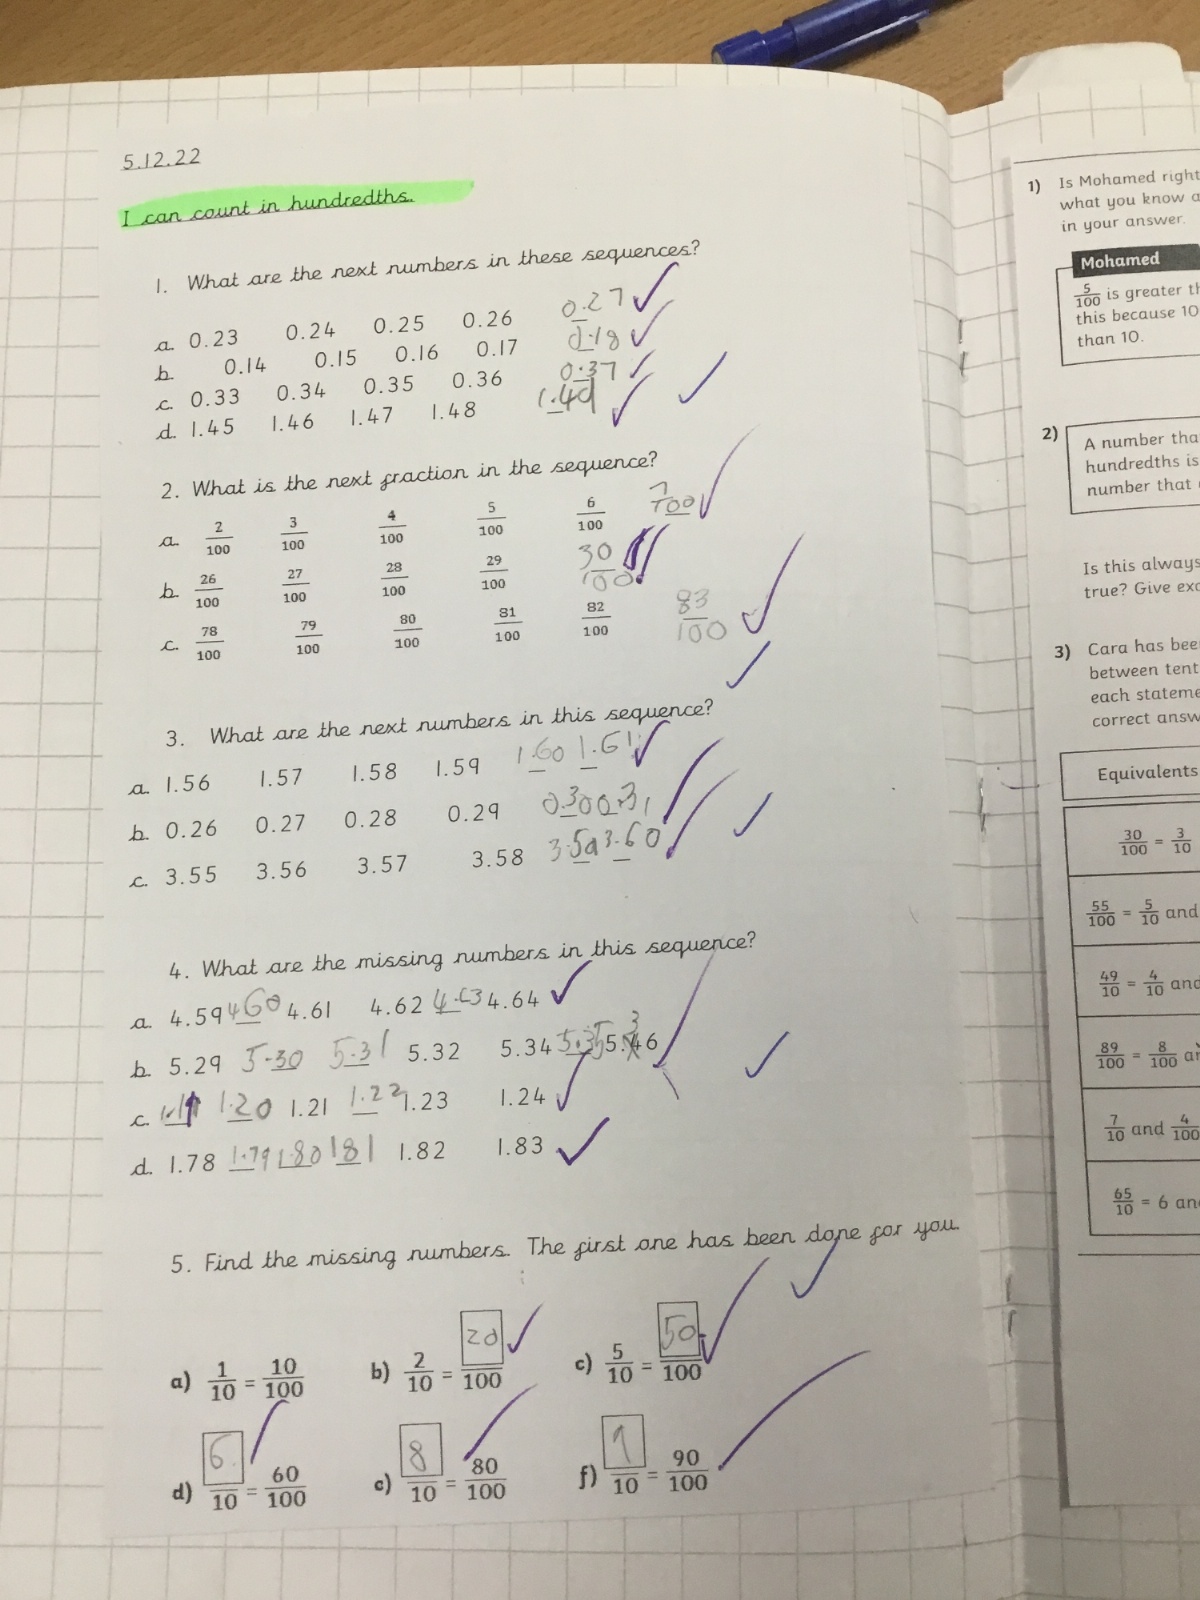 5.12.22
I can count in hundredths.
1. What are the next numbers in these sequences?
a. 0.23 0.24 0.25 0.26 0.27
b. 0.14 0.15 0.16 0.17 0.18
c. 0.33 0.34 0.35 0.36 0.37
d. 1.45 1.46 1.47 1.48 1.49
2. What is the next fraction in the sequence?
a. 2/100 3/100 4/100 5/100 6/100 7/100
b. 26/100 27/100 28/100 29/100 30/100
c. 78/100 79/100 80/100 81/100 82/100 83/100
3. What are the next numbers in this sequence?
a. 1.56 1.57 1.58 1.59 1.60 1.61
b. 0.26 0.27 0.28 0.29 0.30 0.31
c. 3.55 3.56 3.57 3.58 3.59 3.60
4. What are the missing numbers in this sequence?
a. 4.59 4.60 4.61 4.62 4.63 4.64
b. 5.29 5.30 5.31 5.32 5.34 5.35 5.36
c. 1.19 1.20 1.21 1.22 1.23 1.24
d. 1.78 1.79 1.80 1.81 1.82 1.83
5. Find the missing numbers. The first one has been done for you.
a) 1/10 = 10/100 b) 2/10 = 20/100 c) 5/10 = 50/100
d) 6/10 = 60/100 e) 8/10 = 80/100 f) 9/10 = 90/100
1) Is Mohamed right
what you know
in your answer.
Mohamed
5/100 is greater
this because 10
than 10.
2) A number
hundredths is
number that
Is this always
true? Give
3) Cara has
between
each
correct
Equivalents
30/100 = 3/10
55/100 = 5/10 and
49/10 = 4/10 and
89/100 = 8/100
7/10 and 4/100
65/10 = 6